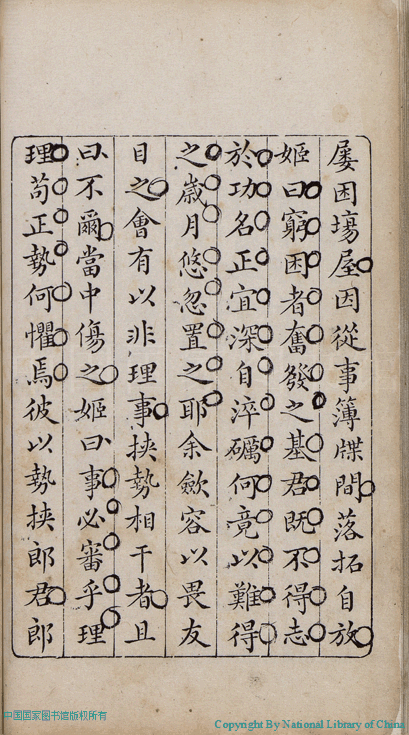 屡困塲屋因從事簿牒間落拓自放
姬曰窮困者奮發之基君既不得志
於功名正宜深自淬礪何竟以難得
之歲月悠忽置之耶余歛容以畏友
目之會有以非理事挾勢相干者且
曰不爾當中傷之姬曰事必審乎理
理苟正勢何懼焉彼以勢挾郎君郎
中国国家图书馆版权所有
Copyright By National Library of China